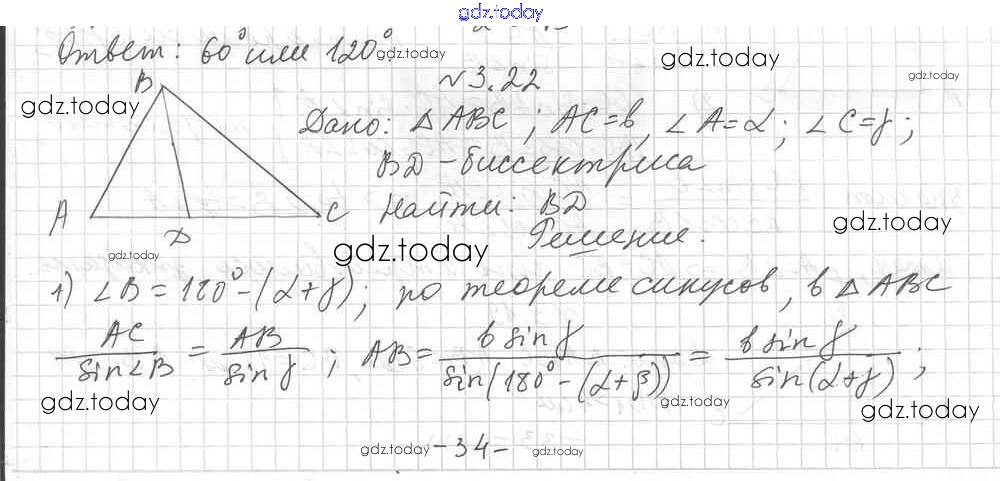 gdz.today
Ответ: 60° или 120°. gdz.today
gdz.today
gdz.today
№ 3.22
B
gdz.today
Дано: △ABC; AC=b, ∠A=α; ∠C=γ;
BD - биссектриса
A D C
Найти: BD
gdz.today
Решение.
gdz.today
gdz.today
1) ∠B = 180° - (α+γ); по теореме синусов, в △ABC
AC / sin∠B = AB / sin γ ; AB = b sin γ / sin(180° - (α+β)) = b sin γ / sin(α+γ) ;
gdz.today
gdz.today
gdz.today
gdz.today - 34 - gdz.today